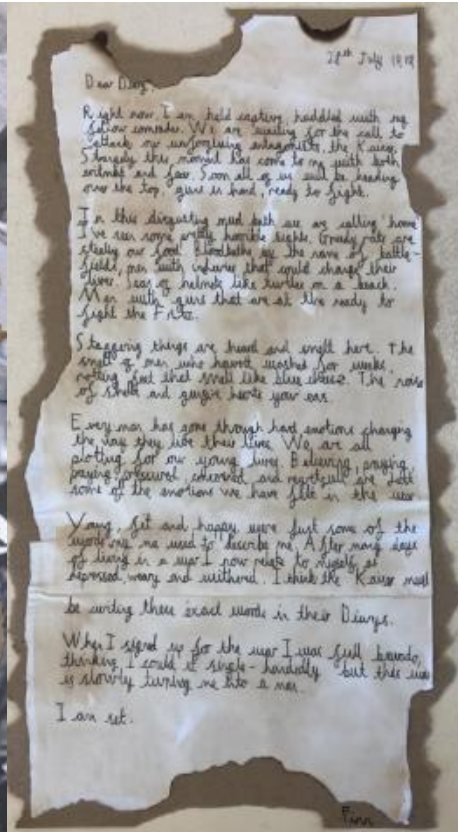 28th July 1918
Dear Diary,
Right now, I am held captive, huddled with my
fellow comrades. We are waiting for the call to
attack our unforgiving antagonists, the Kaiser.
Strangely this moment has come to me with both
and fear. Soon all of us will be heading
over the top, guns in hand, ready to fight.
In this disgusting mud bath we are calling 'home'
I've seen some horrible sights. Greedy rats are
stealing our food. Bloodbaths by the name of battle-
fields, men with injuries that could change their
lives. Seas of helmets like turtles on a beach.
Men with guns that are at the ready to
fight the Fritz.
Staggering things are heard and smelt here. The
smell of men who havent washed for weeks,
rotting feet that smell like blue cheese. The noise
of shells and gunfire your ears.
Every man has gone through hard emotions changing
the way they live their lives. We are all
for our young lives. Believing, praying,
concerned and are just
some of the emotions we have felt in the war
Young, fit and happy were just some of the
words my used to describe me. After many days
of living in a war I now relate to myself as
depressed, weary and withered. I think the Kaiser must
be writing these exact words in their Diarys.
When I signed up for the war I was full bravado,
thinking I could it single-handedly but this war
is slowly turning me into a man.
I am set.
Finn